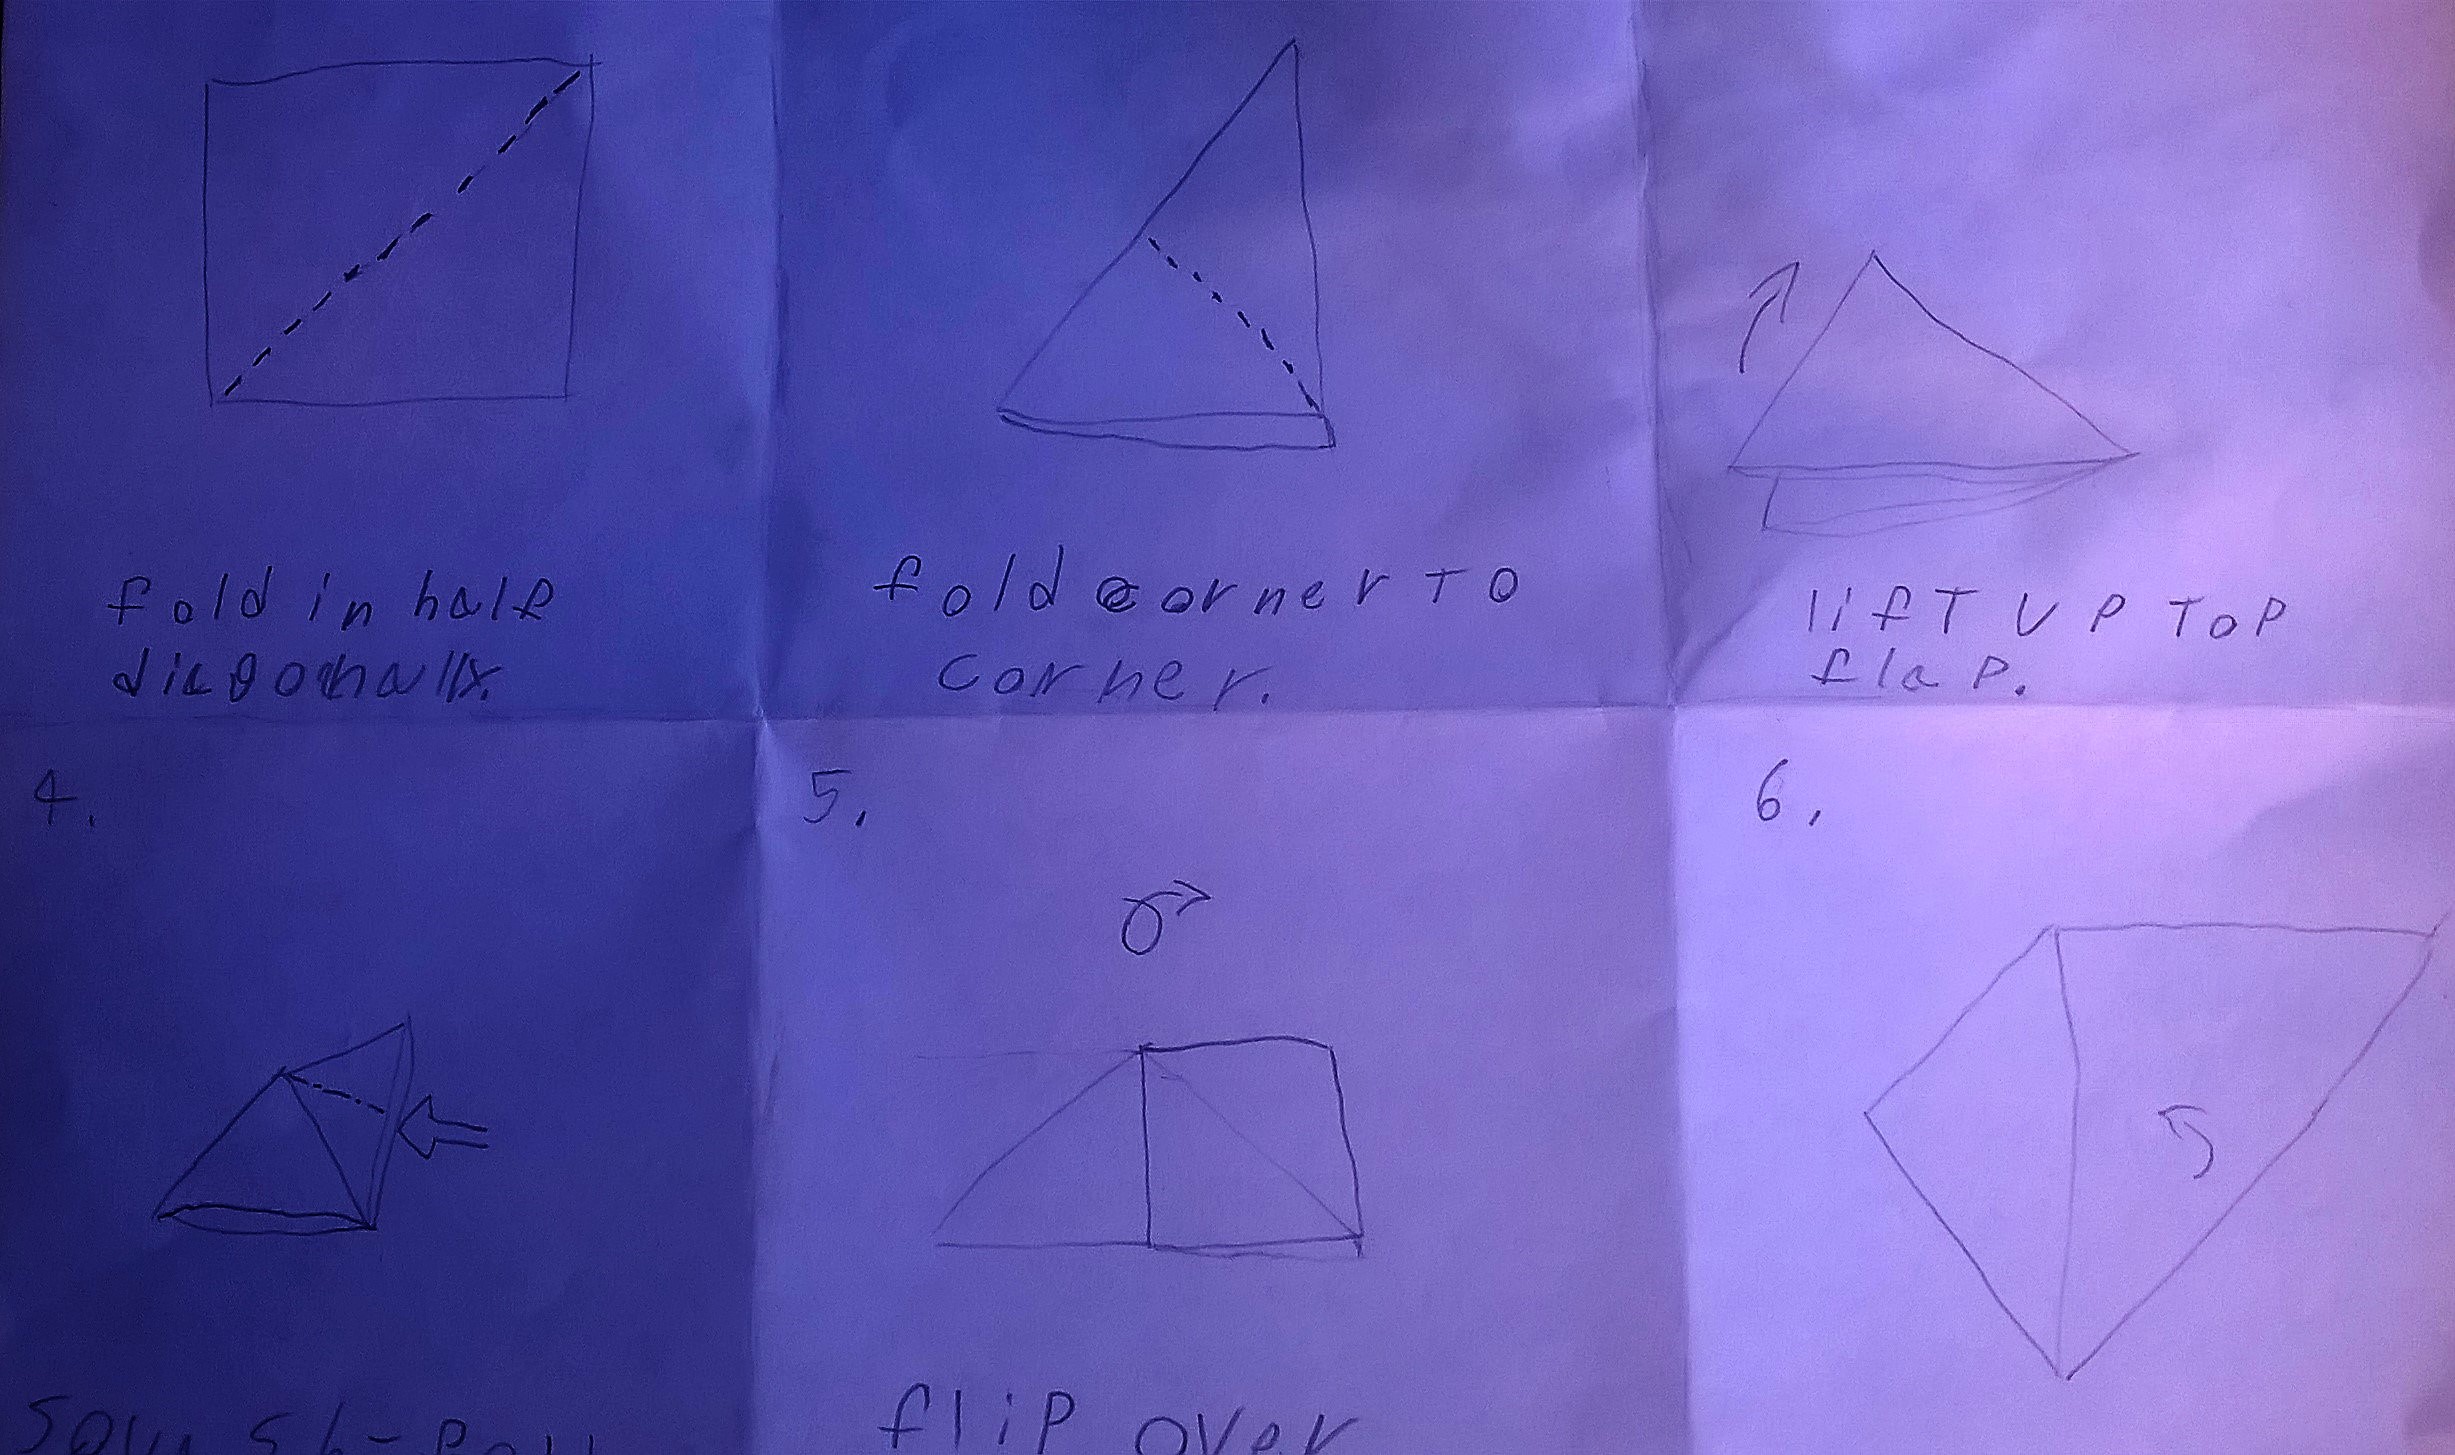 fold in half
diagonally.
fold corner TO
corner.
lifT UP ToP
flaP.
4.
5.
6.
fliP over